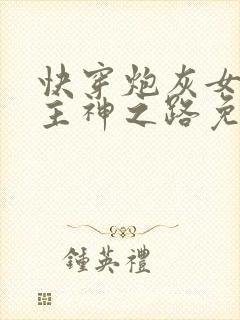 快穿炮灰女
主神之路免
鍾英禮